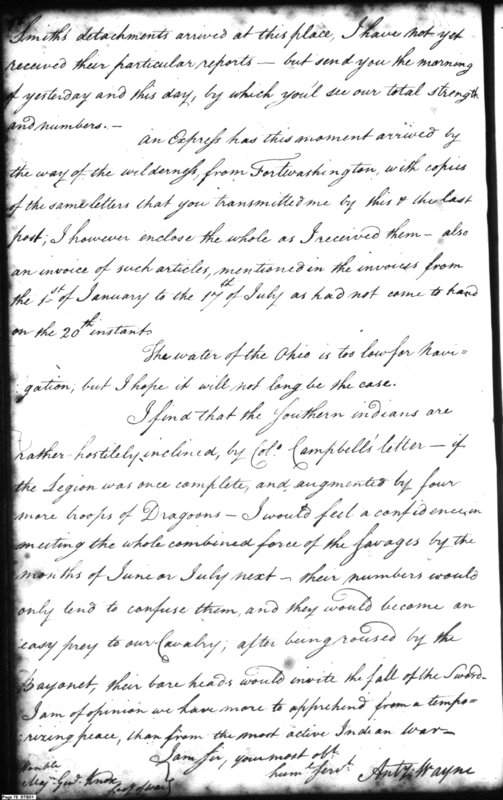 Smith's detachments arrived at this place, I have not yet
received their particular reports — but send you the morning
of yesterday and this day, by which you'l see our total strength
and numbers. —
An Express has this moment arrived by
the way of the wilderness from Fortwashington, with copies
of the same letters that you transmitted me by this & the last
post; I however enclose the whole as I received them — also
an invoice of such articles, mentioned in the invoices from
the 1st of January to the 17th of July as had not come to hand
on the 20th instant.
The water of the Ohio is too low for navi-
gation, but I hope it will not long be the case.
I find that the Southern indians are
rather hostilely inclined, by Colo. Campbell's letter — if
the Legion was once complete, and augmented by four
more troops of Dragoons — I would feel a confidence in
meeting the whole combined force of the savages by the
months of June or July next — their numbers would
only tend to confuse them, and they would become an
easy prey to our Cavalry, after being roused by the
Bayonet, their bare heads would invite the fall of the Sword —
I am of opinion we have more to apprehend from a tempo-
rizing peace, than from the most active Indian War —
I am Sir, your most obt.
humle Servt. Anty. Wayne
Honble
Majr. Genl. Knox
Secy of War